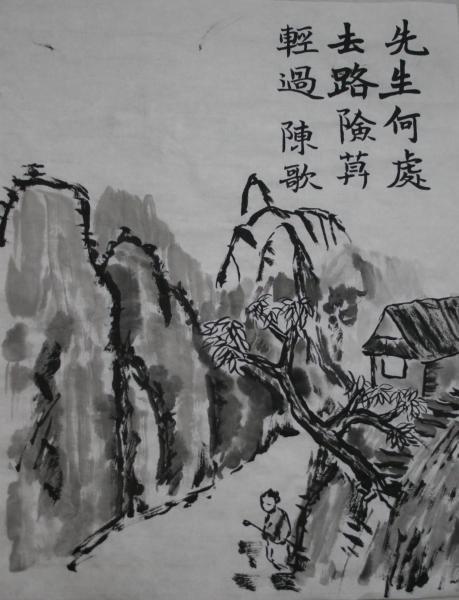 先生何處
去路險莫
輕過 陳歌